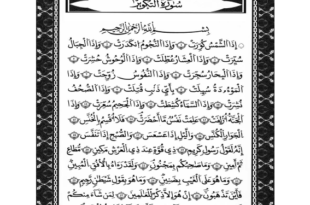 سُورَةُ التَّكْوِيرِ
بِسْمِ اللَّهِ الرَّحْمَٰنِ الرَّحِيمِ
إِذَا الشَّمْسُ كُوِّرَتْ وَإِذَا النُّجُومُ انكَدَرَتْ وَإِذَا الْجِبَالُ
سُيِّرَتْ وَإِذَا الْعِشَارُ عُطِّلَتْ وَإِذَا الْوُحُوشُ حُشِرَتْ
وَإِذَا الْبِحَارُ سُجِّرَتْ وَإِذَا النُّفُوسُ زُوِّجَتْ وَإِذَا
الْمَوْءُۥدَةُ سُئِلَتْ بِأَيِّ ذَنبٍ قُتِلَتْ وَإِذَا الصُّحُفُ
نُشِرَتْ وَإِذَا السَّمَاءُ كُشِطَتْ وَإِذَا الْجَحِيمُ سُعِّرَتْ وَإِذَا
الْجَنَّةُ أُزْلِفَتْ عَلِمَتْ نَفْسٌ مَّا أَحْضَرَتْ فَلَا أُقْسِمُ بِالْخُنَّسِ
الْجَوَارِ الْكُنَّسِ وَاللَّيْلِ إِذَا عَسْعَسَ وَالصُّبْحِ إِذَا تَنَفَّسَ
إِنَّهُ لَقَوْلُ رَسُولٍ كَرِيمٍ ذِي قُوَّةٍ عِندَ ذِي الْعَرْشِ مَكِينٍ مُّطَاعٍ
ثَمَّ أَمِينٍ وَمَا صَاحِبُكُم بِمَجْنُونٍ وَلَقَدْ رَآهُ بِالْأُفُقِ الْمُبِينِ
وَمَا هُوَ عَلَى الْغَيْبِ بِضَنِينٍ وَمَا هُوَ بِقَوْلِ شَيْطَانٍ رَّجِيمٍ
فَأَيْنَ تَذْهَبُونَ إِنْ هُوَ إِلَّا ذِكْرٌ لِّلْعَالَمِينَ لِمَن شَاءَ مِنكُمْ